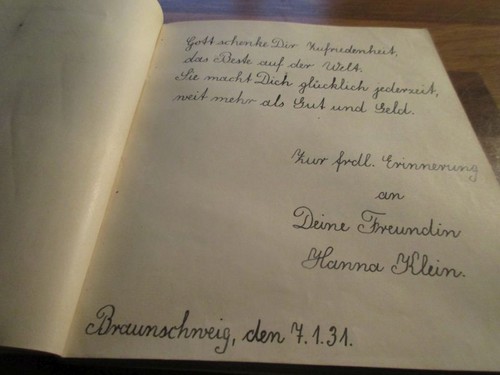 Gott schenke Dir Zufriedenheit,
das Beste auf der Welt.
Sie macht Dich glücklich jederzeit,
weit mehr als Gut und Geld.
Zur frdl. Erinnerung
an
Deine Freundin
Hanna Klein.
Braunschweig, den 7.1.31.